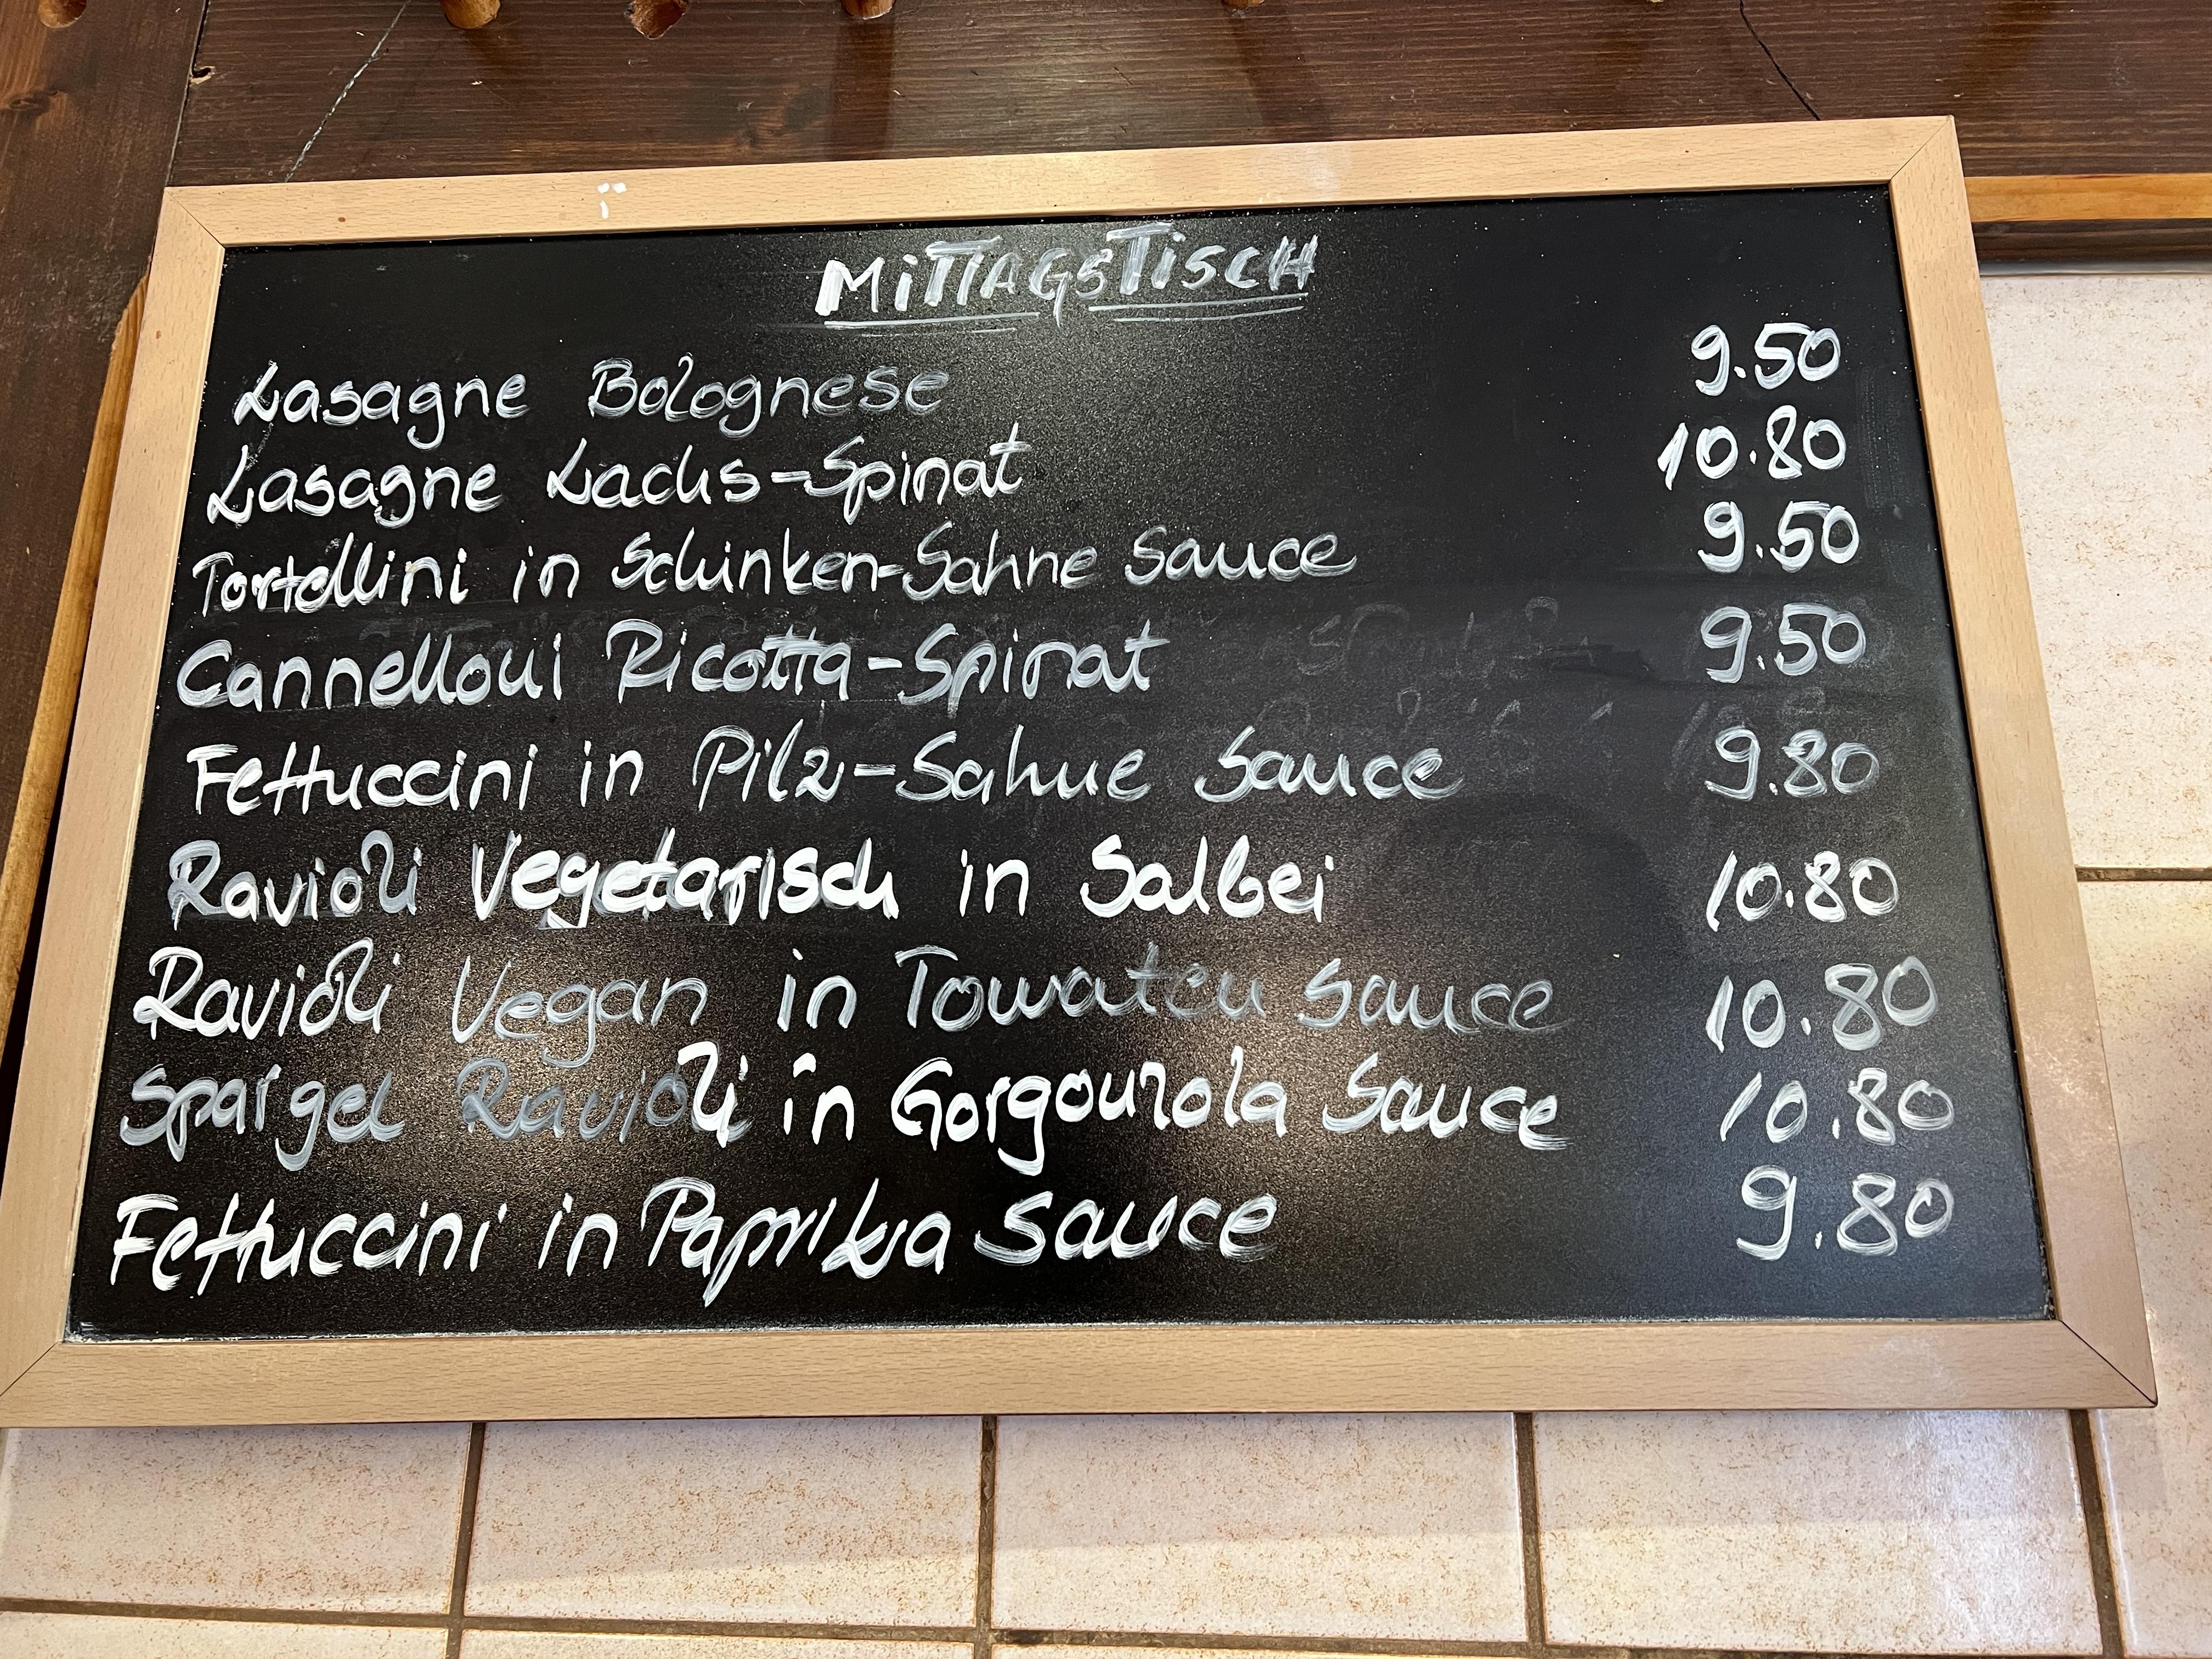 MiTTAGSTiSCH
Lasagne Bolognese 9.50
Lasagne Lachs-Spinat 10.80
Tortellini in Schinken-Sahne Sauce 9.50
Cannelloni Ricotta-Spinat 9.50
Fettuccini in Pilz-Sahne Sauce 9.80
Ravioli Vegetarisch in Salbei 10.80
Ravioli Vegan in Tomaten Sauce 10.80
Spargel Ravioli in Gorgonzola Sauce 10.80
Fettuccini in Paprika Sauce 9.80